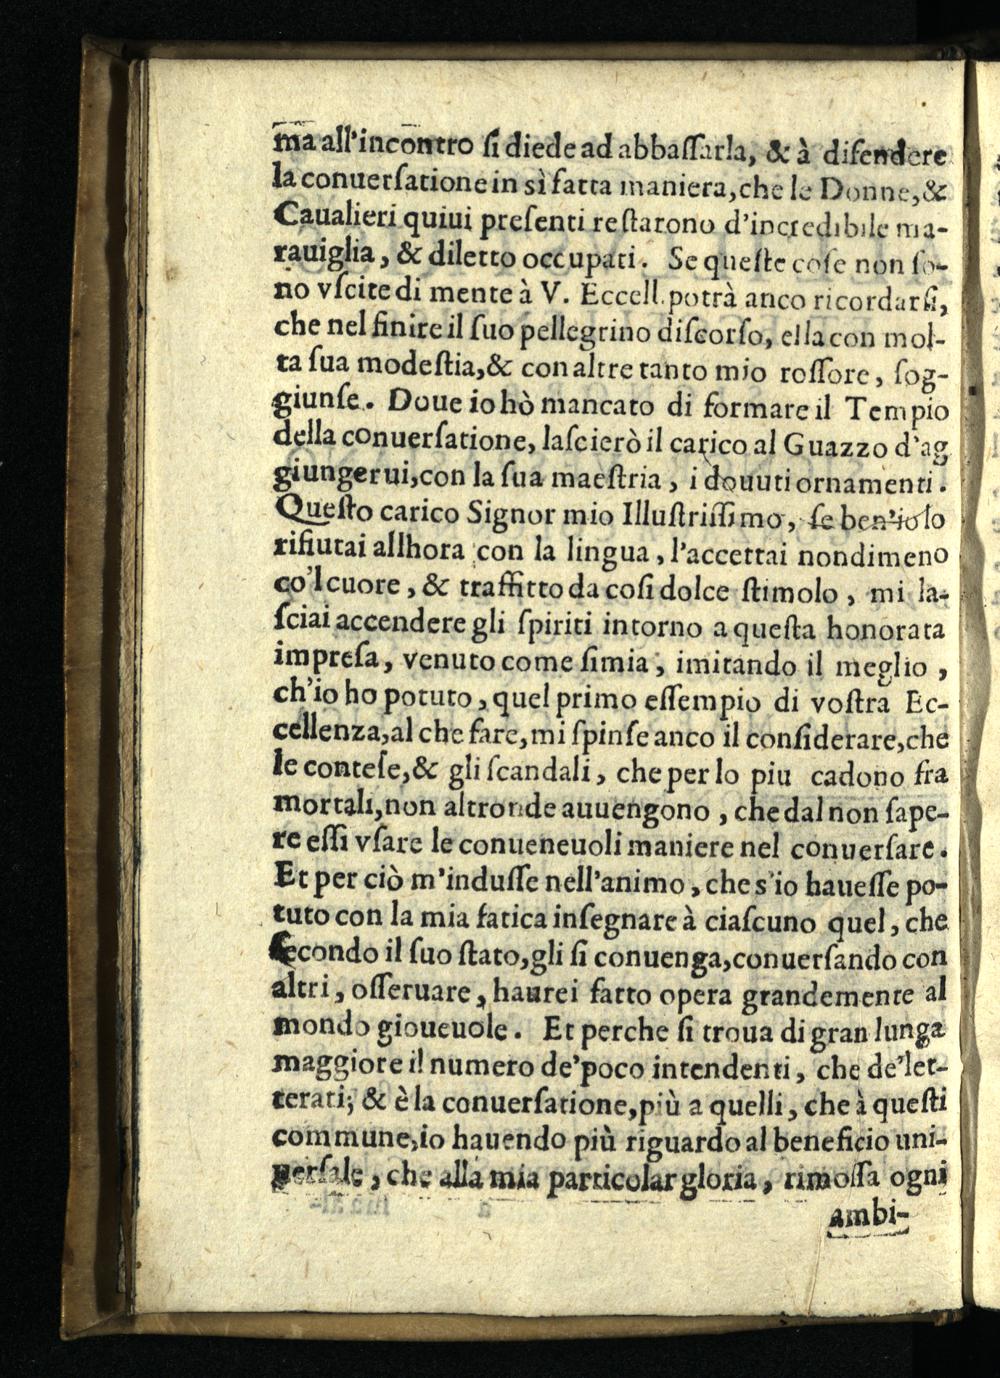 ma all'incontro ſi diede ad abbaſſarla, & à difendere
la conuerſatione in sì fatta maniera, che le Donne, &
Caualieri quiui preſenti reſtarono d'incredibile ma-
rauiglia, & diletto occupati. Se queſte coſe non ſo-
no vſcite di mente à V. Eccell. potrà anco ricordarſi,
che nel finire il ſuo pellegrino diſcorſo, ella con mol-
ta ſua modeſtia, & con altre tanto mio roſſore, ſog-
giunſe. Doue io hò mancato di formare il Tempio
della conuerſatione, laſcierò il carico al Guazzo d'ag
giungerui, con la ſua maeſtria, i douuti ornamenti.
Queſto carico Signor mio Illuſtriſſimo, ſe ben'io lo
rifiutai allhora con la lingua, l'accettai nondimeno
co'l cuore, & traffitto da coſi dolce ſtimolo, mi la-
ſciai accendere gli ſpiriti intorno a queſta honorata
impreſa, venuto come ſimia, imitando il meglio,
ch'io ho potuto, quel primo eſſempio di voſtra Ec-
cellenza, al che fare, mi ſpinſe anco il conſiderare, che
le conteſe, & gli ſcandali, che per lo piu cadono fra
mortali, non altronde auuengono, che dal non ſape-
re eſſi vſare le conueneuoli maniere nel conuerſare.
Et per ciò m'induſſe nell'animo, che s'io haueſſe po-
tuto con la mia fatica inſegnare à ciaſcuno quel, che
ſecondo il ſuo ſtato, gli ſi conuenga, conuerſando con
altri, oſſeruare, haurei fatto opera grandemente al
mondo gioueuole. Et perche ſi troua di gran lunga
maggiore il numero de'poco intendenti, che de'let-
terati; & è la conuerſatione, più a quelli, che à queſti
commune, io hauendo più riguardo al beneficio uni-
uerſale, che alla mia particolar gloria, rimoſſa ogni
ambi-